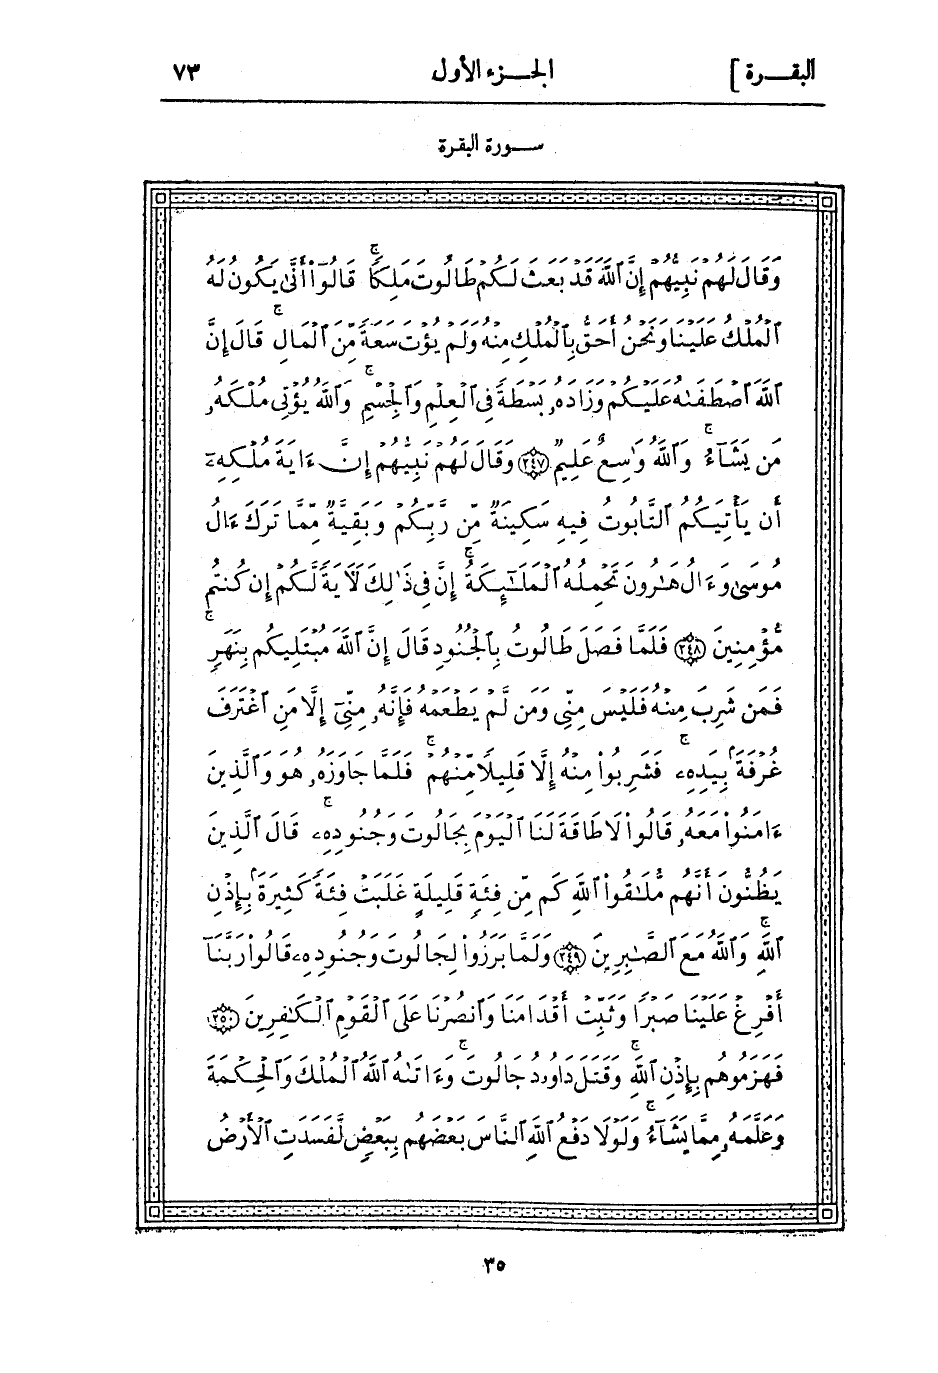 البقرة ]
الجزء الأول
٧٣
سورة البقرة
وَقَالَ لَهُمْ نَبِيُّهُمْ إِنَّ ٱللَّهَ قَدْ بَعَثَ لَكُمْ طَالُوتَ مَلِكًاۚ قَالُوٓا۟ أَنَّىٰ يَكُونُ لَهُ
ٱلْمُلْكُ عَلَيْنَا وَنَحْنُ أَحَقُّ بِٱلْمُلْكِ مِنْهُ وَلَمْ يُؤْتَ سَعَةً مِّنَ ٱلْمَالِۚ قَالَ إِنَّ
ٱللَّهَ ٱصْطَفَىٰهُ عَلَيْكُمْ وَزَادَهُۥ بَسْطَةً فِى ٱلْعِلْمِ وَٱلْجِسْمِۚ وَٱللَّهُ يُؤْتِى مُلْكَهُۥ
مَن يَشَآءُۚ وَٱللَّهُ وَٰسِعٌ عَلِيمٌ ﴿٢٤٧﴾ وَقَالَ لَهُمْ نَبِيُّهُمْ إِنَّ ءَايَةَ مُلْكِهِۦٓ
أَن يَأْتِيَكُمُ ٱلتَّابُوتُ فِيهِ سَكِينَةٌ مِّن رَّبِّكُمْ وَبَقِيَّةٌ مِّمَّا تَرَكَ ءَالُ
مُوسَىٰ وَءَالُ هَٰرُونَ تَحْمِلُهُ ٱلْمَلَٰٓئِكَةُۚ إِنَّ فِى ذَٰلِكَ لَءَايَةً لَّكُمْ إِن كُنتُم
مُّؤْمِنِينَ ﴿٢٤٨﴾ فَلَمَّا فَصَلَ طَالُوتُ بِٱلْجُنُودِ قَالَ إِنَّ ٱللَّهَ مُبْتَلِيكُم بِنَهَرٍۚ
فَمَن شَرِبَ مِنْهُ فَلَيْسَ مِنِّى وَمَن لَّمْ يَطْعَمْهُ فَإِنَّهُۥ مِنِّىٓ إِلَّا مَنِ ٱغْتَرَفَ
غُرْفَةًۢ بِيَدِهِۦۚ فَشَرِبُوا۟ مِنْهُ إِلَّا قَلِيلًا مِّنْهُمْۚ فَلَمَّا جَاوَزَهُۥ هُوَ وَٱلَّذِينَ
ءَامَنُوا۟ مَعَهُۥ قَالُوا۟ لَا طَاقَةَ لَنَا ٱلْيَوْمَ بِجَالُوتَ وَجُنُودِهِۦۚ قَالَ ٱلَّذِينَ
يَظُنُّونَ أَنَّهُم مُّلَٰقُوا۟ ٱللَّهِ كَم مِّن فِئَةٍ قَلِيلَةٍ غَلَبَتْ فِئَةً كَثِيرَةًۢ بِإِذْنِ
ٱللَّهِۚ وَٱللَّهُ مَعَ ٱلصَّٰبِرِينَ ﴿٢٤٩﴾ وَلَمَّا بَرَزُوا۟ لِجَالُوتَ وَجُنُودِهِۦ قَالُوا۟ رَبَّنَآ
أَفْرِغْ عَلَيْنَا صَبْرًا وَثَبِّتْ أَقْدَامَنَا وَٱنصُرْنَا عَلَى ٱلْقَوْمِ ٱلْكَٰفِرِينَ ﴿٢٥٠﴾
فَهَزَمُوهُم بِإِذْنِ ٱللَّهِۚ وَقَتَلَ دَاوُۥدُ جَالُوتَۚ وَءَاتَىٰهُ ٱللَّهُ ٱلْمُلْكَ وَٱلْحِكْمَةَ
وَعَلَّمَهُۥ مِمَّا يَشَآءُۚ وَلَوْلَا دَفْعُ ٱللَّهِ ٱلنَّاسَ بَعْضَهُم بِبَعْضٍ لَّفَسَدَتِ ٱلْأَرْضُ
٣٥